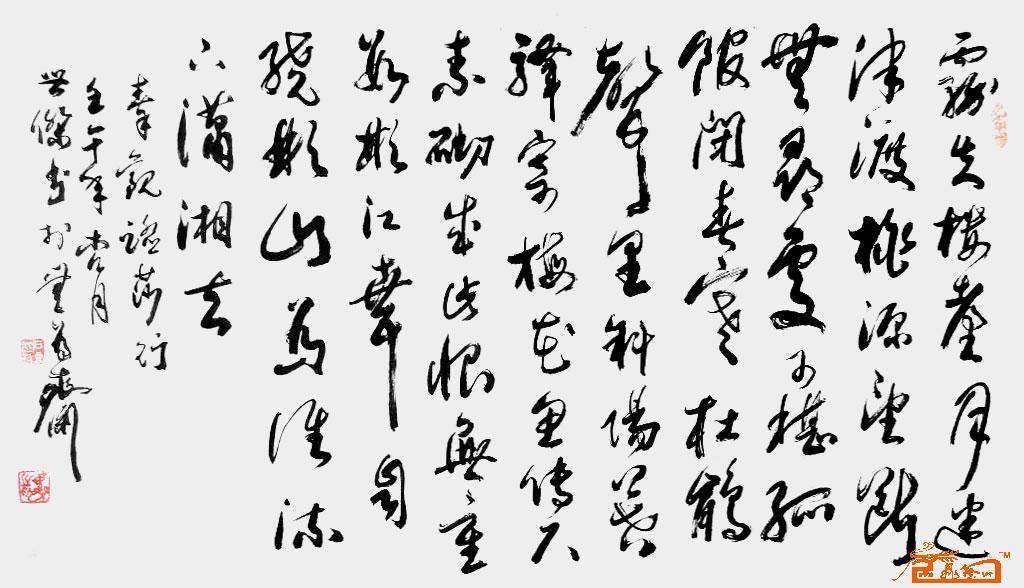 霧失樓臺月迷
津渡桃源望斷
無尋處可堪孤
館閉春寒杜鵑
聲里斜陽暮
驛寄梅花魚傳尺
素砌成此恨無重
數郴江幸自
繞郴山為誰流
下瀟湘去
秦觀踏莎行
壬午年月
世傑書於無為齋